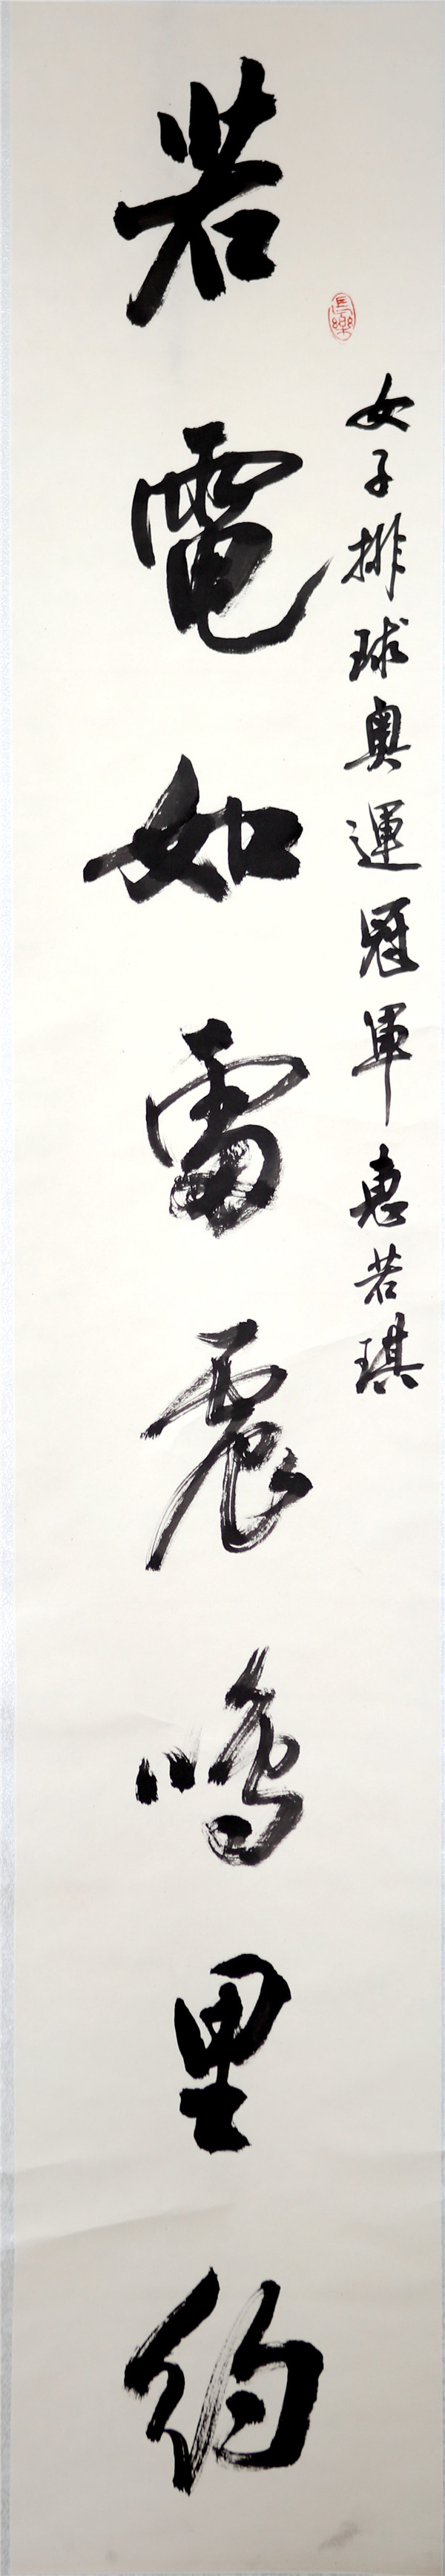 長樂
女子排球奧運冠軍惠若琪
若電如雷震鳴里約